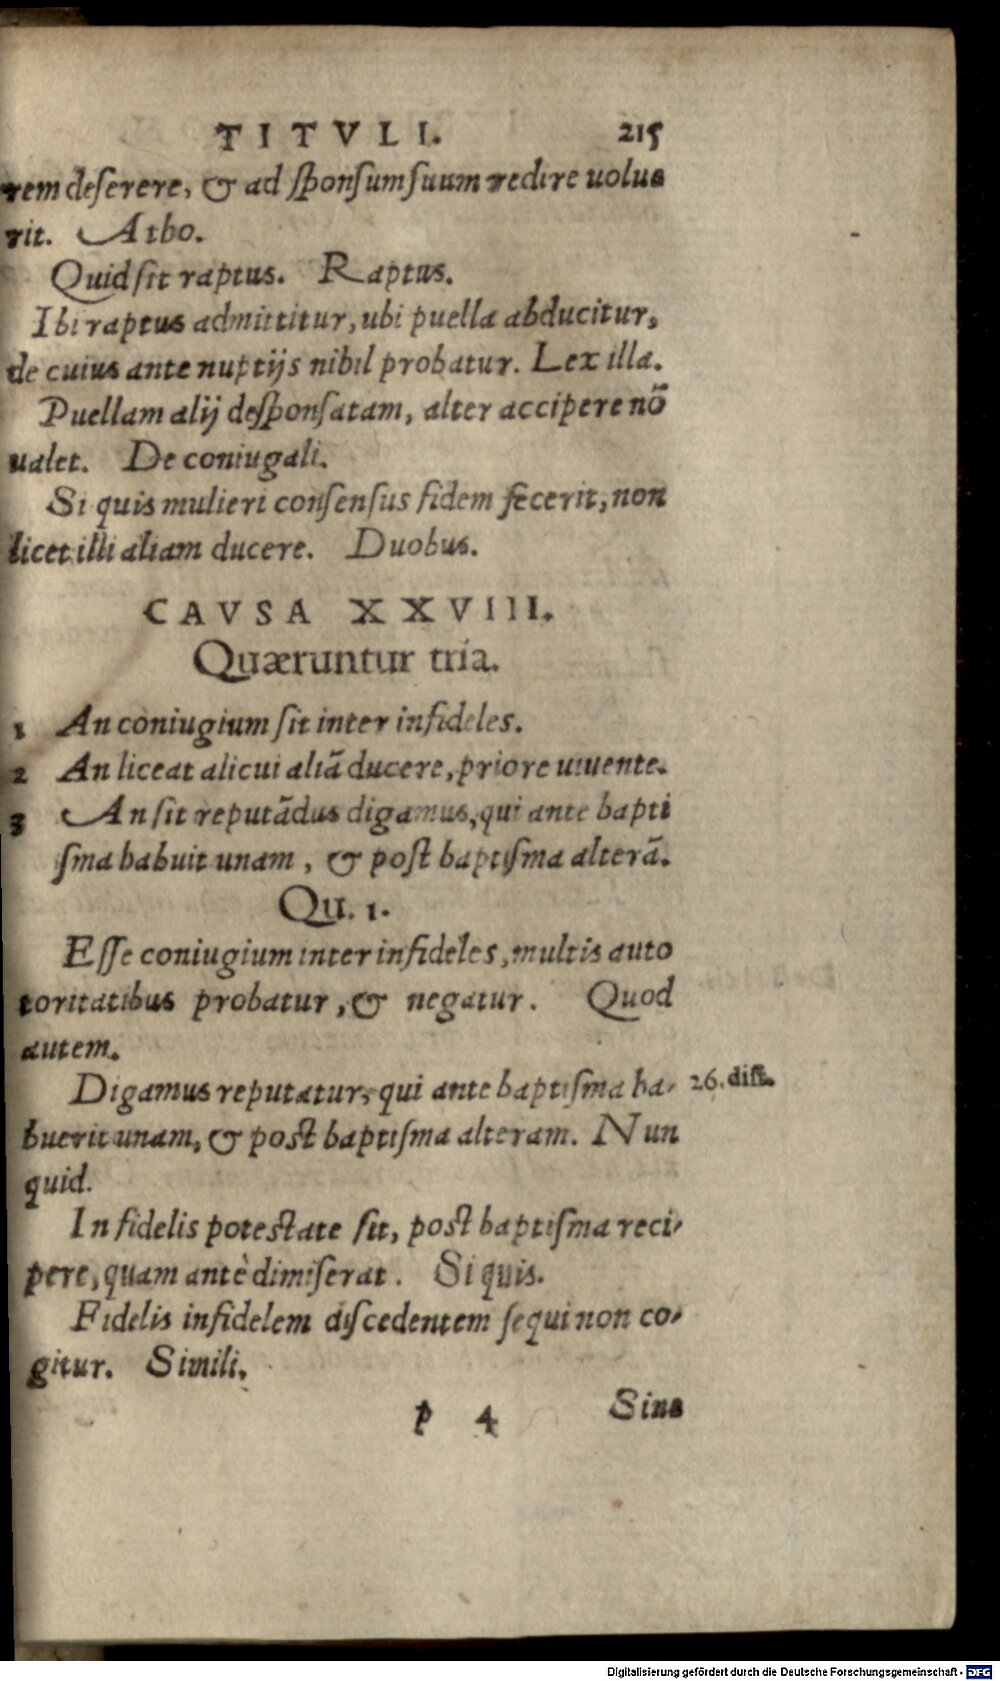 TITVLI. 215
rem deserere, & ad sponsum suum redire uolue
rit. Atho.
Quid sit raptus. Raptus.
Ibi raptus admittitur, ubi puella abducitur,
de cuius ante nuptijs nihil probatur. Lex illa.
Puellam alij desponsatam, alter accipere nō
ualet. De coniugali.
Si quis mulieri consensus fidem fecerit, non
licet illi aliam ducere. Duobus.
CAVSA XXVIII.
Quæruntur tria.
1 An coniugium sit inter infideles.
2 An liceat alicui aliā ducere, priore uiuente.
3 An sit reputādus digamus, qui ante bapti
sma habuit unam, & post baptisma alterā.
Qu. 1.
Esse coniugium inter infideles, multis auto
toritatibus probatur, & negatur. Quod
autem.
Digamus reputatur, qui ante baptisma ha- 26. dist.
buerit unam, & post baptisma alteram. Nun
quid.
In fidelis potestate sit, post baptisma reci-
pere, quam antè dimiserat. Si quis.
Fidelis infidelem discedentem sequi non co-
gitur. Simili.
p 4 Sine
Digitalisierung gefördert durch die Deutsche Forschungsgemeinschaft - DFG